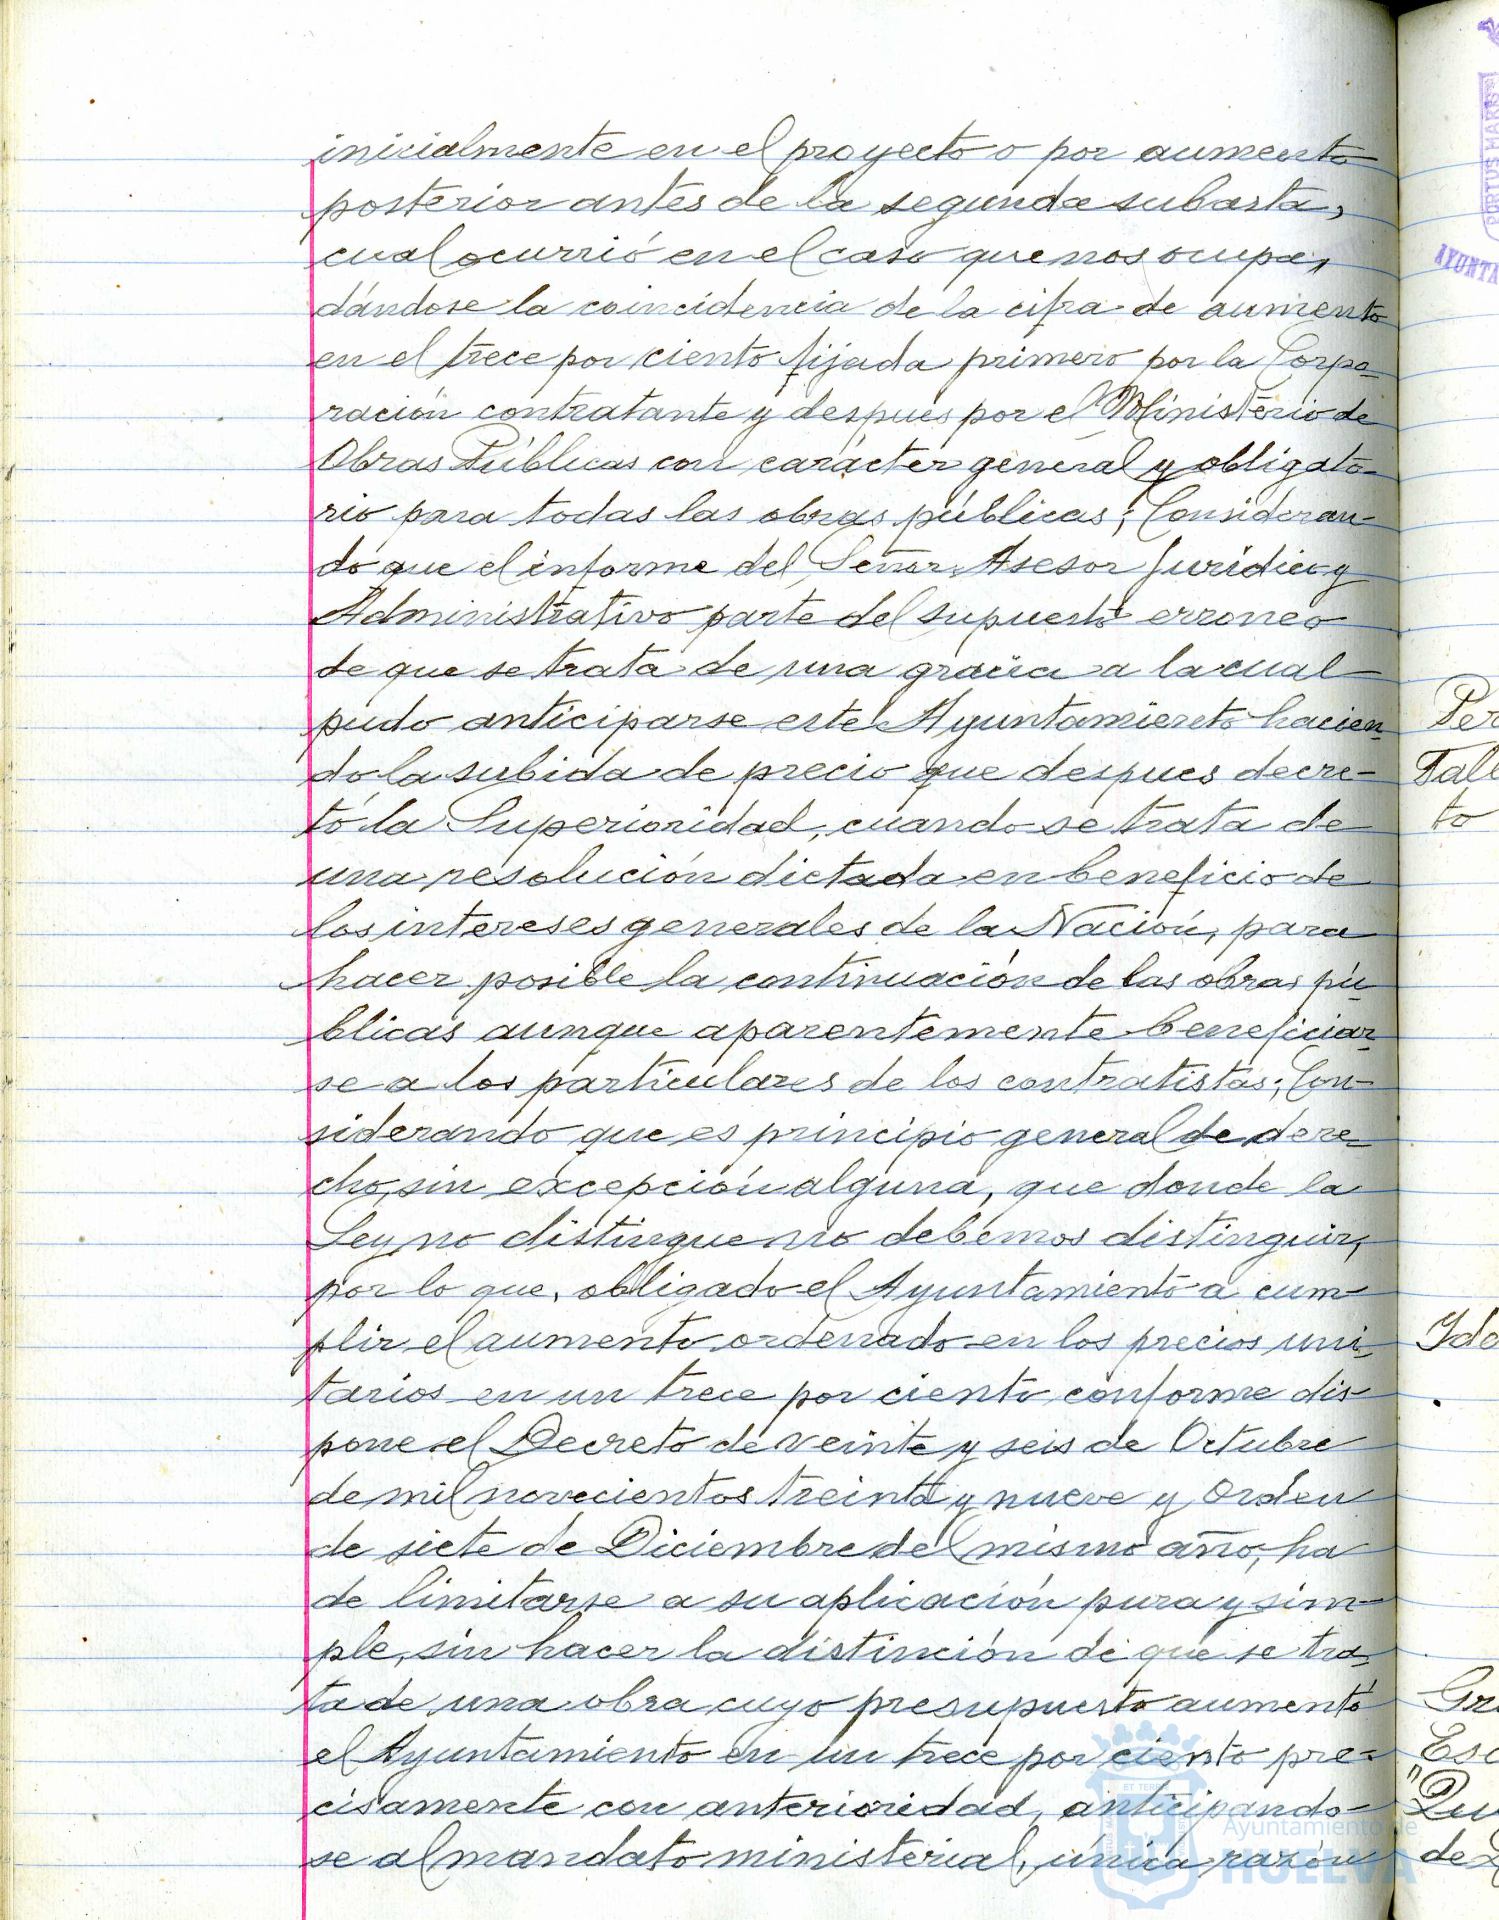 inicialmente en el proyecto o por aumento
posterior antes de la segunda subasta,
cual ocurrió en el caso que nos ocupa,
dándose la coincidencia de la cifra de aumento
en el trece por ciento fijada primero por la Corpo-
ración contratante y despues por el Ministerio de
Obras Públicas con carácter general y obligato-
rio para todas las obras públicas; Consideran-
do que el informe del Señor Asesor Jurídico y
Administrativo parte del supuesto erroneo
de que se trata de una gracia a la cual
pudo anticiparse este Ayuntamiento hacien-
do la subida de precio que despues decre-
tó la Superioridad, cuando se trata de
una resolución dictada en beneficio de
los intereses generales de la Nación, para
hacer posible la continuación de las obras pú-
blicas aunque aparentemente beneficiar-
se a los particulares de los contratistas; Con-
siderando que es principio general de dere-
cho, sin excepción alguna, que donde la
Ley no distingue no debemos distinguir,
por lo que, obligado el Ayuntamiento a cum-
plir el aumento ordenado en los precios uni-
tarios en un trece por ciento conforme dis-
pone el Decreto de veinte y seis de Octubre
de mil novecientos treinta y nueve y Orden
de siete de Diciembre del mismo año, ha
de limitarse a su aplicación pura y sim-
ple, sin hacer la distinción de que se tra-
ta de una obra cuyo presupuesto aumentó
el Ayuntamiento en un trece por ciento pre-
cisamente con anterioridad, anticipando-
se al mandato ministerial, única razón
Ayuntamiento de
HUELVA
PORTUS MARIS
AYUNTA
Per
Talle
to
Gr
Esc
de